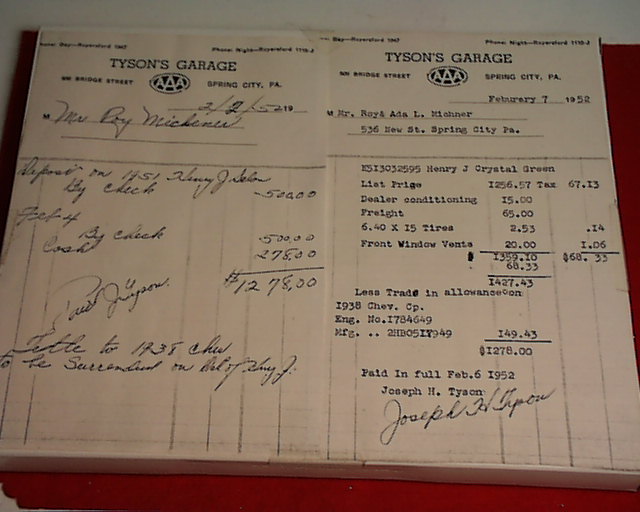 Phone: Day—Royersford 1047 Phone: Night—Royersford 1110-J
TYSON'S GARAGE
BRIDGE STREET AAA SPRING CITY, PA.
2/2/52 19
M Mr Roy Michener
Deposit on 1951 Henry J Sedan
By Check 500,00
Feb 4
By check 500,00
Cash 278,00
$1278,00
Title to 1938 Chev
to be Surrendered on Del of Henry J.
Phone: Day—Royersford 1047 Phone: Night—Royersford 1110-J
TYSON'S GARAGE
BRIDGE STREET AAA SPRING CITY, PA.
Feburary 7 1952
M Mr. Roy& Ada L. Michner
536 New St. Spring City Pa.
E5I3032595 Henry J Crystal Green
List Price I256.57 Tax 67.I3
Dealer conditioning I5.00
Freight 65.00
6.40 X I5 Tires 2.53 .I4
Front Window Vents 20.00 I.06
$ I359.I0 $68.33
68.33
I427.43
Less Trade in allowance on
I938 Chev. Cp.
Eng. No.I784649
Mfg. .. 2HB05I7949 I49.43
$I278.00
Paid In full Feb.6 I952
Joseph H. Tyson
Joseph H Tyson